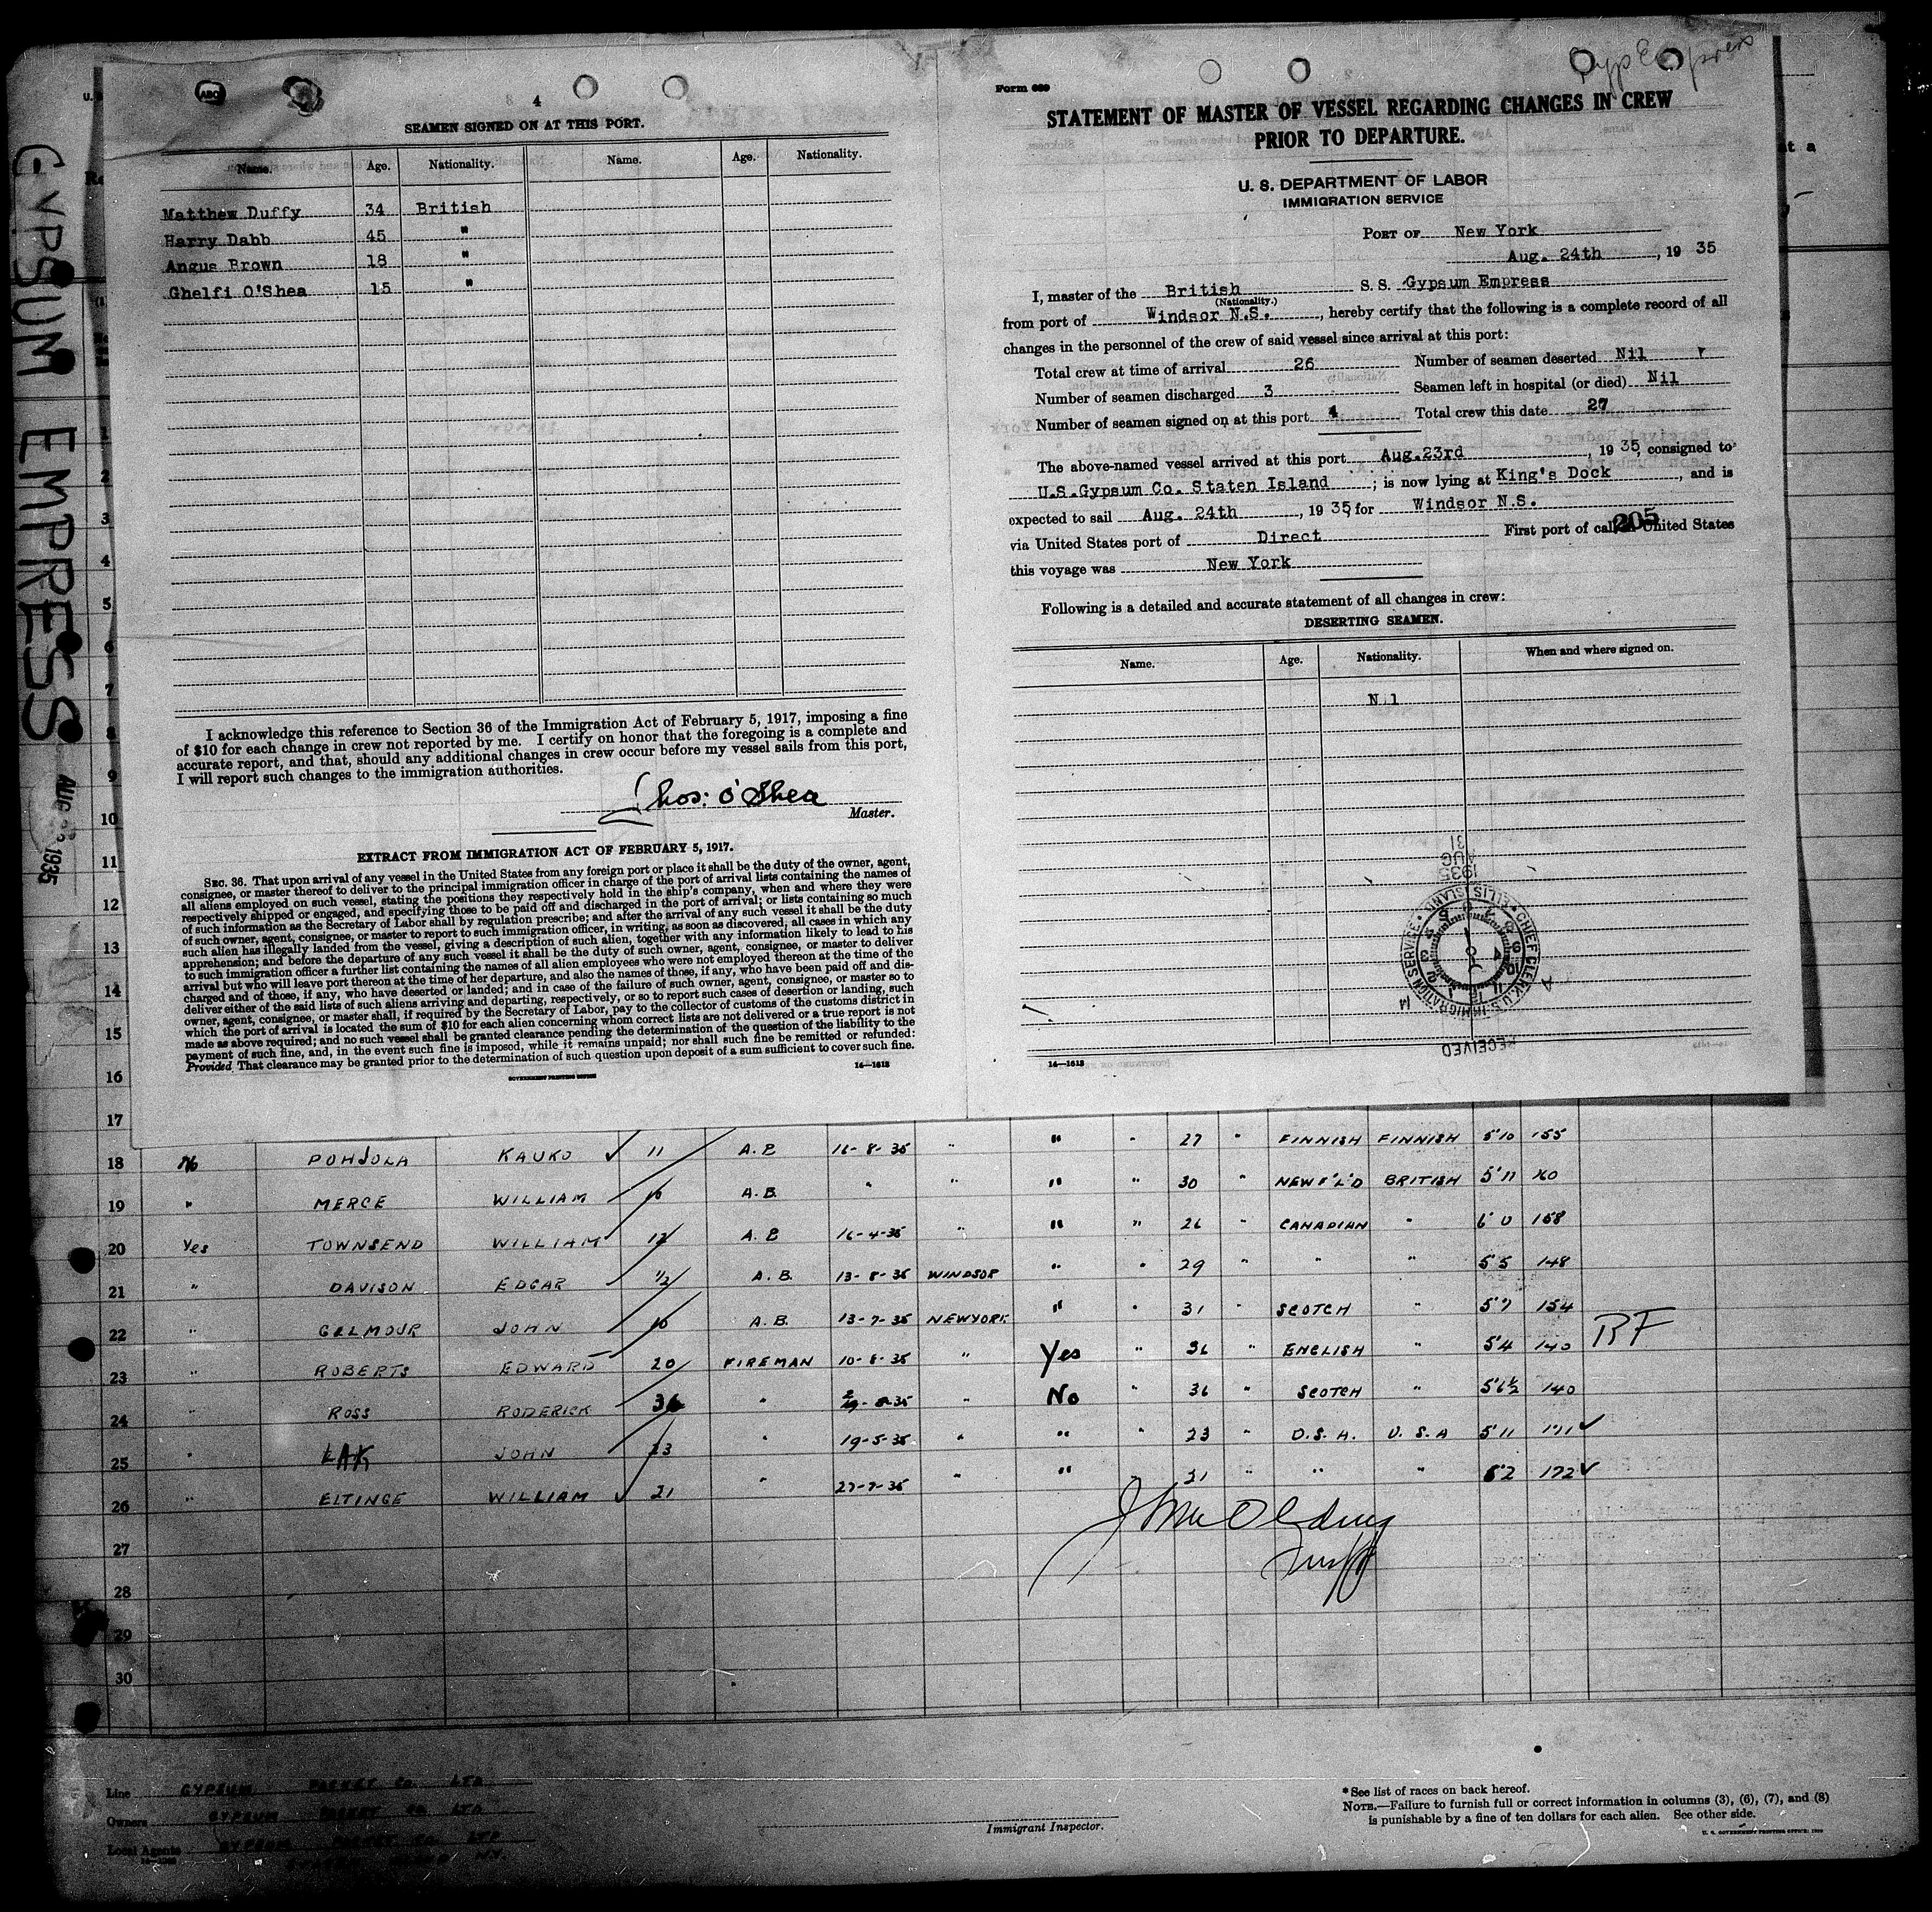 GYPSUM EMPRESS
1935
4
SEAMEN SIGNED ON AT THIS PORT.
Name. Age. Nationality. Name. Age. Nationality.
Matthew Duffy 34 British
Harry Dabb 45 "
Angus Brown 18 "
Ghelfi O'Shea 15 "
I acknowledge this reference to Section 36 of the Immigration Act of February 5, 1917, imposing a fine
of $10 for each change in crew not reported by me. I certify on honor that the foregoing is a complete and
accurate report, and that, should any additional changes in crew occur before my vessel sails from this port,
I will report such changes to the immigration authorities.
Thos: O'Shea
Master.
EXTRACT FROM IMMIGRATION ACT OF FEBRUARY 5, 1917.
SEC. 36. That upon arrival of any vessel in the United States from any foreign port or place it shall be the duty of the owner, agent,
consignee, or master thereof to deliver to the principal immigration officer in charge of the port of arrival lists containing the names of
all aliens employed on such vessel, stating the positions they respectively hold in the ship's company, when and where they were
respectively shipped or engaged, and specifying those to be paid off and discharged in the port of arrival; or lists containing so much
of such information as the Secretary of Labor shall by regulation prescribe; and after the arrival of any such vessel it shall be the duty
of such owner, agent, consignee, or master to report to such immigration officer, in writing, as soon as discovered, all cases in which any
such alien has illegally landed from the vessel, giving a description of such alien, together with any information likely to lead to his
apprehension; and before the departure of any such vessel it shall be the duty of such owner, agent, consignee, or master to deliver
to such immigration officer a further list containing the names of all alien employees who were not employed thereon at the time of the
arrival but who will leave port thereon at the time of her departure, and also the names of those, if any, who have been paid off and dis-
charged and of those, if any, who have deserted or landed; and in case of the failure of such owner, agent, consignee, or master so to
deliver either of the said lists of such aliens arriving and departing, respectively, or so to report such cases of desertion or landing, such
owner, agent, consignee, or master shall, if required by the Secretary of Labor, pay to the collector of customs of the customs district in
which the port of arrival is located the sum of $10 for each alien concerning whom correct lists are not delivered or a true report is not
made as above required; and no such vessel shall be granted clearance pending the determination of the question of the liability to the
payment of such fine, and, in the event such fine is imposed, while it remains unpaid; nor shall such fine be remitted or refunded:
Provided, That clearance may be granted prior to the determination of such question upon deposit of a sum sufficient to cover such fine.
GOVERNMENT PRINTING OFFICE 14—1613
Form 689
STATEMENT OF MASTER OF VESSEL REGARDING CHANGES IN CREW
PRIOR TO DEPARTURE.
U. S. DEPARTMENT OF LABOR
IMMIGRATION SERVICE
PORT OF New York
Aug. 24th, 19 35
I, master of the British S. S. Gypsum Empress
(Nationality.)
from port of Windsor N.S., hereby certify that the following is a complete record of all
changes in the personnel of the crew of said vessel since arrival at this port:
Total crew at time of arrival 26 Number of seamen deserted Nil
Number of seamen discharged 3 Seamen left in hospital (or died) Nil
Number of seamen signed on at this port 4 Total crew this date 27
The above-named vessel arrived at this port Aug.23rd, 19 35, consigned to
U.S.Gypsum Co. Staten Island; is now lying at King's Dock, and is
expected to sail Aug. 24th, 19 35, for Windsor N.S.
205
via United States port of Direct First port of call United States
this voyage was New York
Following is a detailed and accurate statement of all changes in crew:
DESERTING SEAMEN.
Name. Age. Nationality. When and where signed on.
Nil
RECEIVED
CHIEF CLERK, U.S. IMMIGRATION SERVICE. ELLIS ISLAND
1935 AUG 31
14—1613
1
2
3
4
5
6
7
8
9
10
11
12
13
14
15
16
17
18 No POHJOLA KAUKO 11 A.B. 16-8-35 " " " 27 " FINNISH FINNISH 5'10 155
19 " MERCE WILLIAM 10 A.B. " " " " 30 " NEWF'L'D BRITISH 5'11
20 Yes TOWNSEND WILLIAM 12 A.B. 16-4-35 " " " 26 " CANADIAN " 6'0 158
21 " DAVISON EDGAR 1/2 A.B. 13-8-35 WINDSOR " " 29 " " " 5'5 148
22 " GILMOUR JOHN 10 A.B. 13-7-35 NEWYORK " " 31 " SCOTCH " 5'7 154
23 " ROBERTS EDWARD 20 FIREMAN 10-8-35 " Yes " 36 " ENGLISH " 5'4 140 RF
24 " ROSS RODERICK 36 " " No " 36 " SCOTCH " 5'6½ 140
25 " LAK JOHN 23 " 19-5-35 " " " 23 " U.S.A. U.S.A 5'11 171
26 " ELTINGE WILLIAM 21 " 27-7-35 " " 21 " " " 172
27
28
29
30
Line GYPSUM PACKET CO. LTD
Owners GYPSUM PACKET CO. LTD
Local Agents
Immigrant Inspector.
* See list of races on back hereof.
NOTE.—Failure to furnish full or correct information in columns (3), (6), (7), and (8)
is punishable by a fine of ten dollars for each alien. See other side.